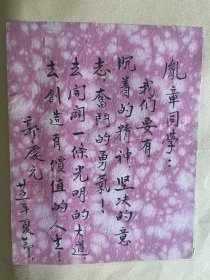 胤章同学：
我们要有
沉着的精神坚决的意
志奋鬥的勇氣！
去闯闢一條光明的大道，
去創造有價值的人生！
郭慶元